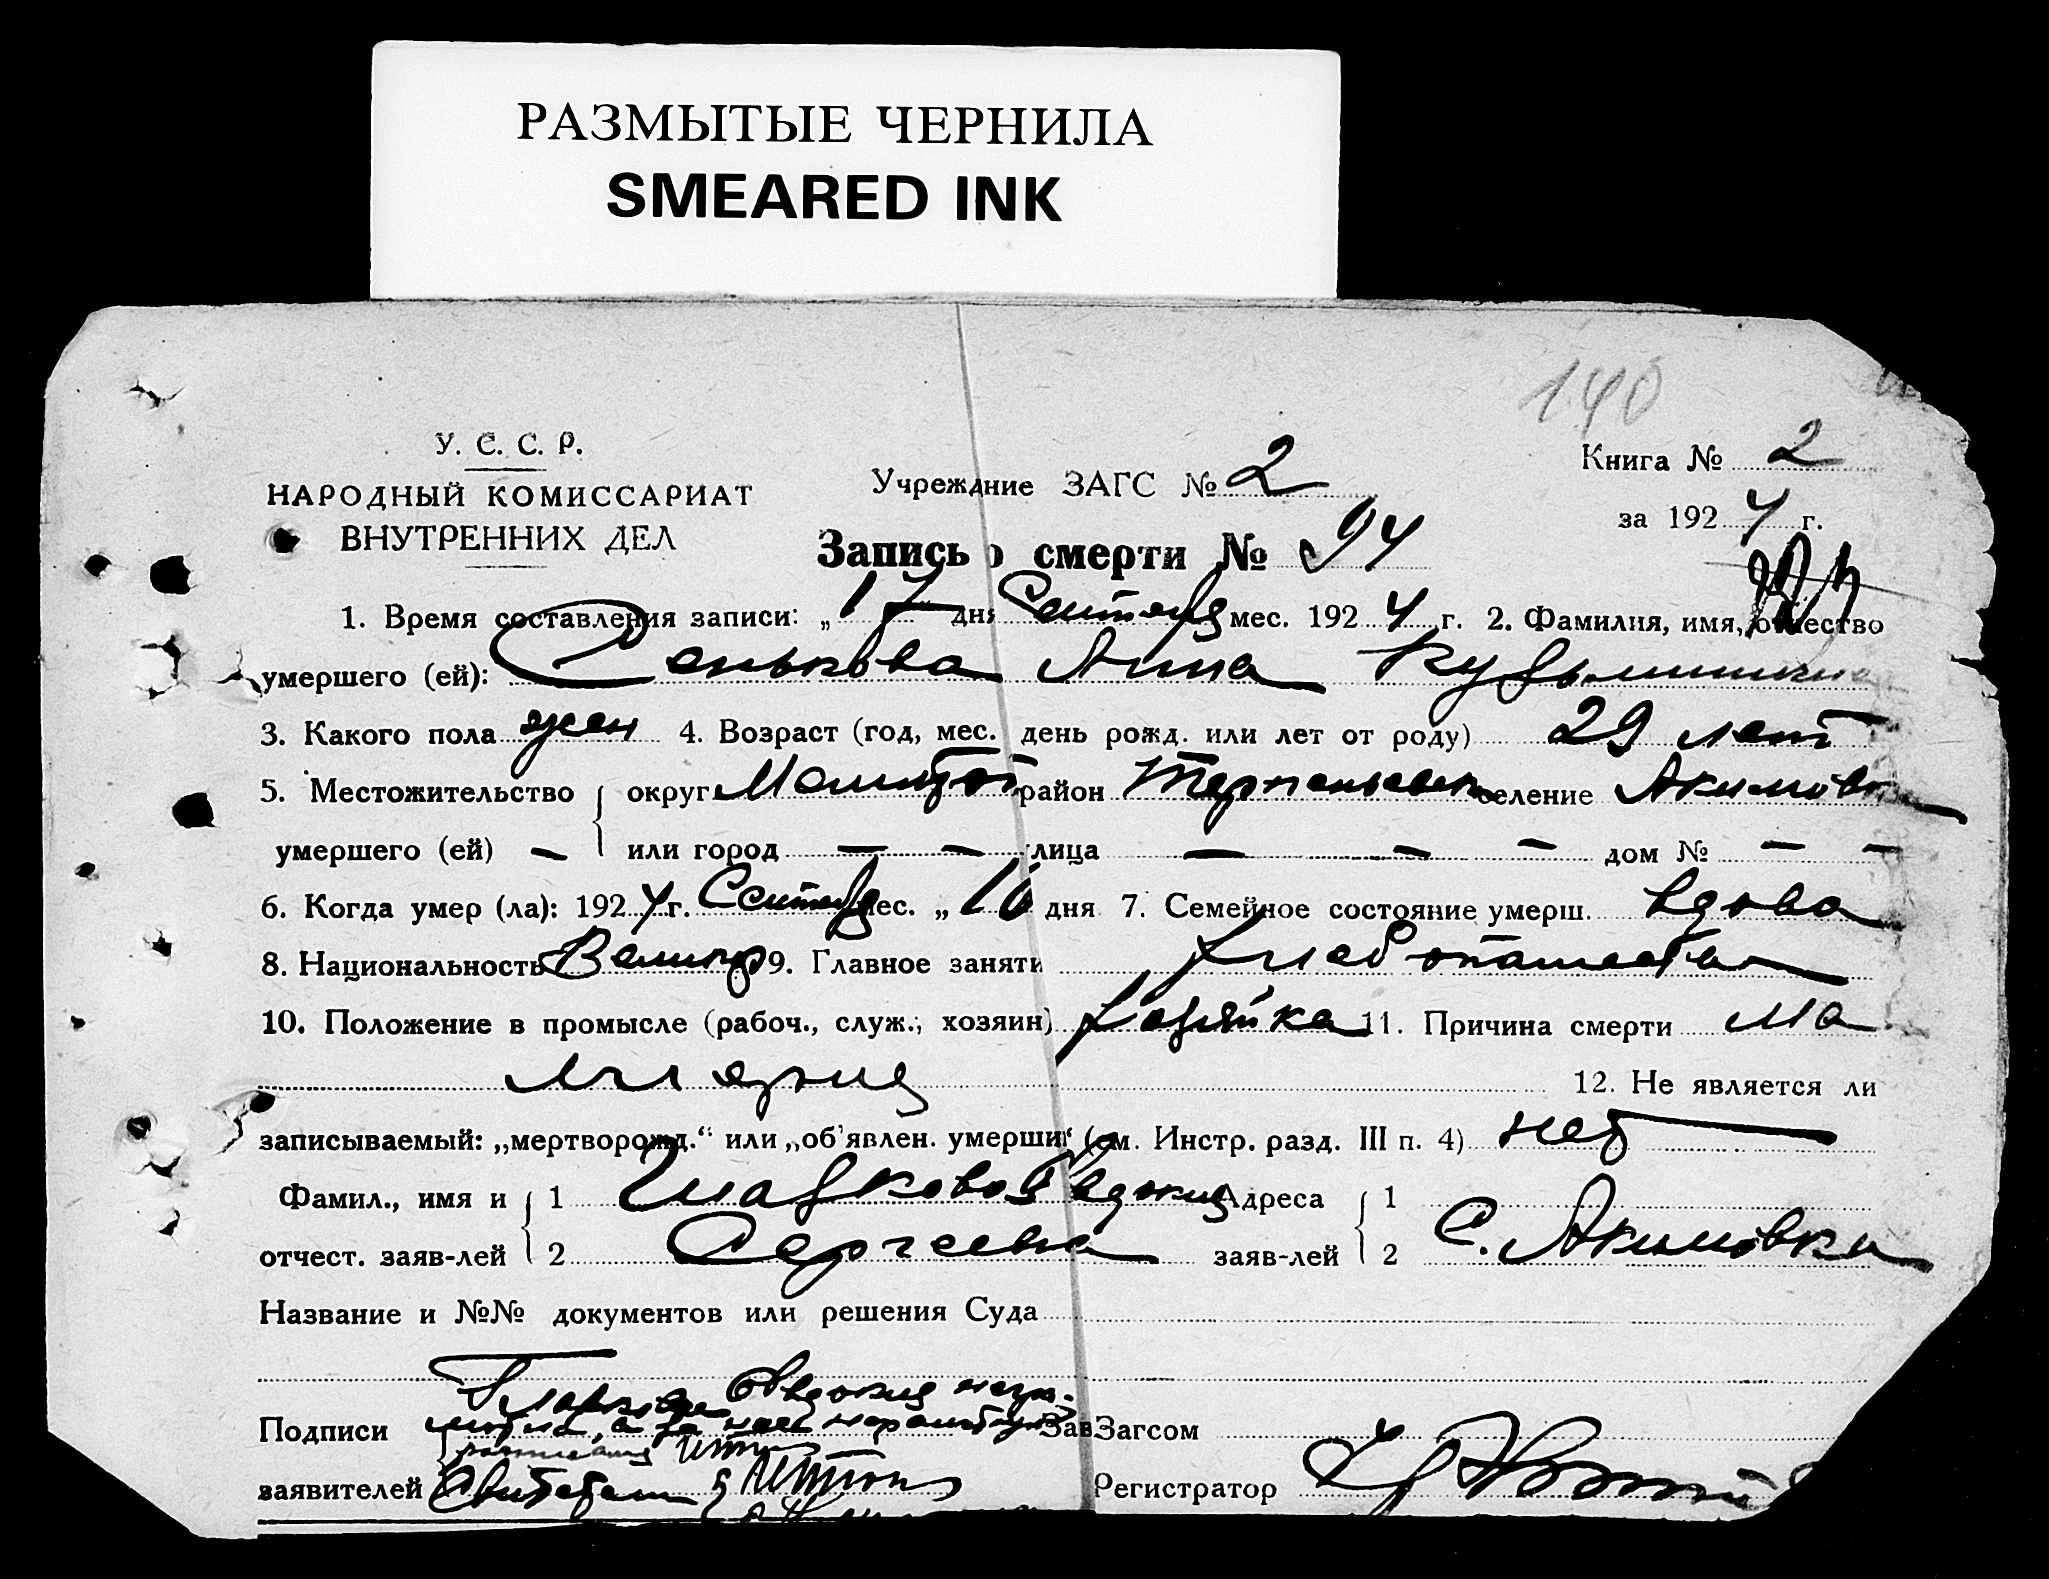 РАЗМЫТЫЕ ЧЕРНИЛА
SMEARED INK
140
У. С. С. Р.
НАРОДНЫЙ КОМИССАРИАТ
ВНУТРЕННИХ ДЕЛ
Учреждние ЗАГС № 2
Книга № 2
за 1924 г.
Запись о смерти № 94
1. Время составления записи: „17 дня Сентября мес. 1924 г. 2. Фамилия, имя, отчество
умершего (ей): Сенькова Анна Кузьминична
3. Какого пола жен 4. Возраст (год, мес. день рожд. или лет от роду) 29 лет
5. Местожительство округ Мелитоп район Терпеньевск селение Акимовка
умершего (ей) — или город — — лица — — — дом № — —
6. Когда умер (ла): 1924 г. Сентября мес. „16 дня 7. Семейное состояние умерш. вдова
8. Национальность Великор 9. Главное заняти хлебопашество
10. Положение в промысле (рабоч., служ., хозяин) хозяйка 11. Причина смерти ма
лярия 12. Не является ли
записываемый: „мертворожд.“ или „об'явлен. умерши“ (см. Инстр. разд. III п. 4) нет
Фамил., имя и 1 Евдокия Адреса 1
отчест. заяв-лей 2 Сергеевна заяв-лей 2 С. Акимовка
Название и №№ документов или решения Суда
Евдокия негра-
Подписи мотна, а за нее неграмотную Зав Загсом
расписался
заявителей Свидетели Регистратор